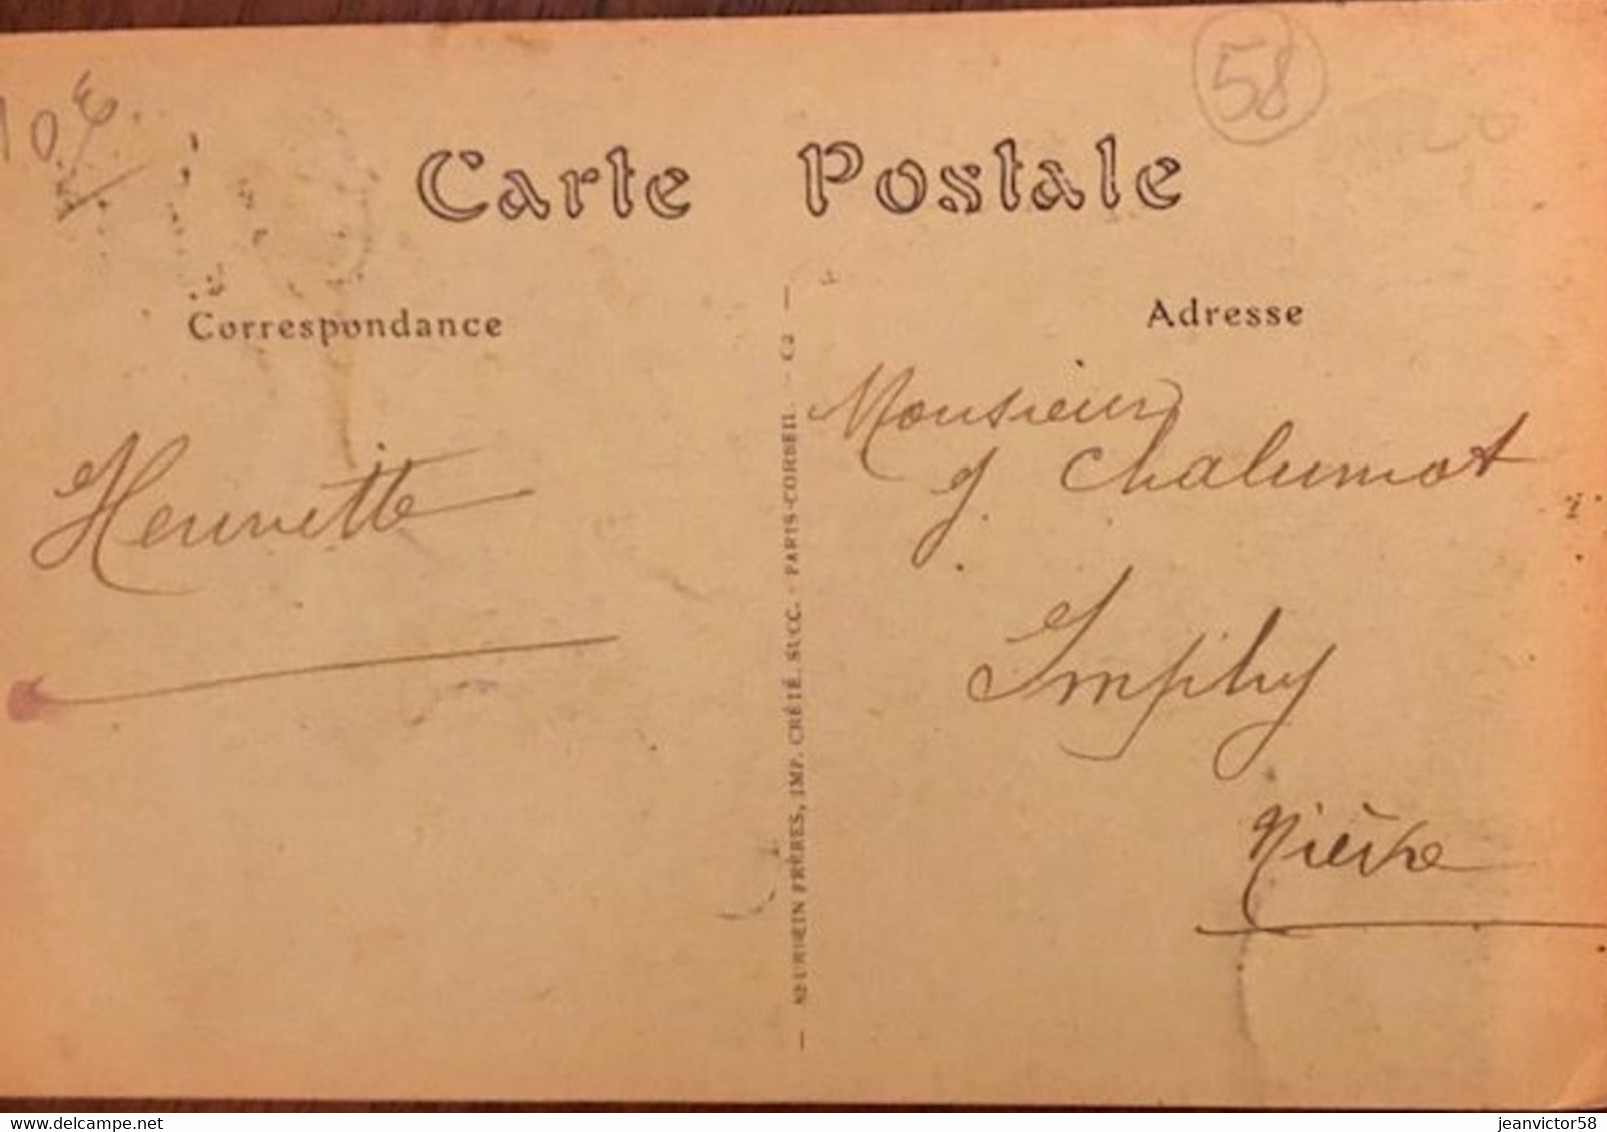 10 €
58
Carte Postale
Correspondance
Adresse
Henriette
Monsieur
J. Chalumot
Imphy
Nièvre
NEURDEIN FRÈRES, IMP. CRÉTÉ, SUCC. - PARIS-CORBEIL. - C2
www.delcampe.net
jeanvictor58